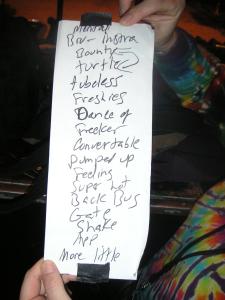 Bounty
turtle
tubeless
Freshies
Dance of
Freeker
Convertable
Pumped up
Feeling
Super hot
Back Bus
Gate
Shake
App
More little